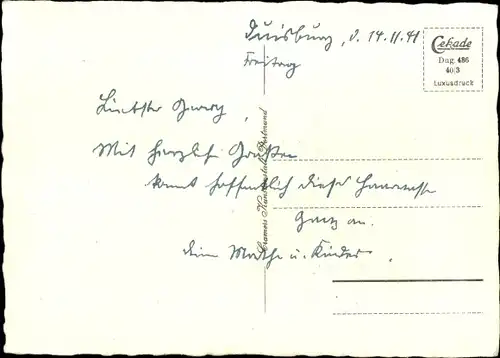 Duisburg, d. 14.11.41
Freitag
Cekade
Dug. 486
40/3
Luxusdruck
Liebster
Mit herzlichen Grüßen
kommt hoffentlich dieser
an.
Deine u. Kinder.
Cramers Kunstanstalt, Dortmund